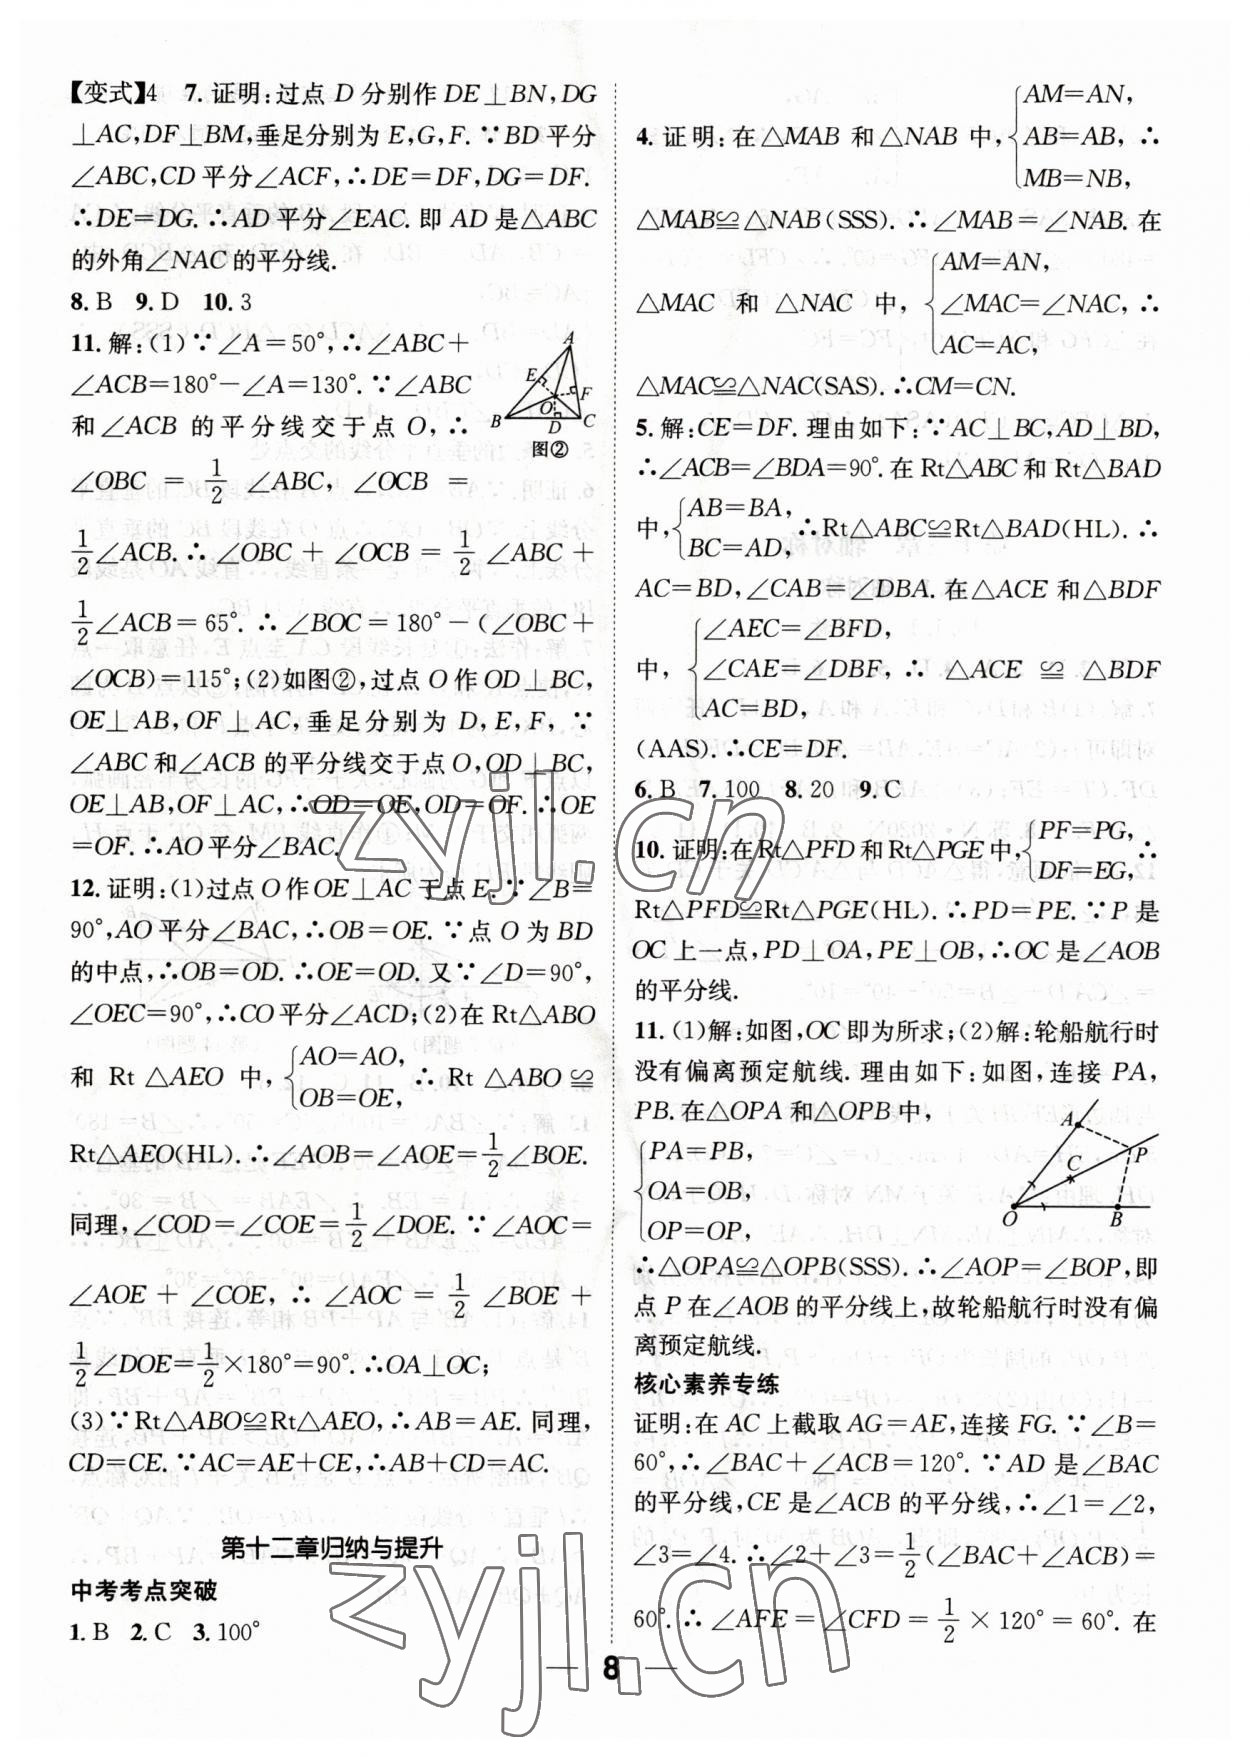 【变式】4　7. 证明:过点 D 分别作 DE⊥BN,DG
⊥AC,DF⊥BM,垂足分别为 E,G,F. ∵BD平分
∠ABC,CD 平分∠ACF,∴DE=DF,DG=DF.
∴DE=DG. ∴AD 平分∠EAC. 即 AD 是△ABC
的外角∠NAC的平分线.
8. B　9. D　10. 3
11. 解:(1)∵∠A=50°,∴∠ABC+
∠ACB=180°-∠A=130°. ∵∠ABC
和∠ACB 的平分线交于点 O,∴
∠OBC = 1/2 ∠ABC, ∠OCB =
1/2 ∠ACB. ∴∠OBC + ∠OCB = 1/2 ∠ABC +
1/2 ∠ACB = 65°. ∴∠BOC = 180° - (∠OBC +
∠OCB)=115°;(2)如图②,过点 O作 OD⊥BC,
OE⊥AB,OF⊥AC,垂足分别为 D,E,F. ∵
∠ABC和∠ACB的平分线交于点 O,OD⊥BC,
OE⊥AB,OF⊥AC,∴OD=OE,OD=OF. ∴OE
=OF. ∴AO平分∠BAC.
A
E
F
O
B
D
C
图②
12. 证明:(1)过点 O作 OE⊥AC于点 E. ∵∠B=
90°,AO平分∠BAC,∴OB=OE. ∵点 O 为 BD
的中点,∴OB=OD. ∴OE=OD. 又∵∠D=90°,
∠OEC=90°,∴CO平分∠ACD;(2)在 Rt△ABO
和 Rt△AEO 中, {AO=AO, OB=OE, ∴ Rt△ABO≌
Rt△AEO(HL). ∴∠AOB=∠AOE=1/2∠BOE.
同理,∠COD=∠COE=1/2∠DOE. ∵∠AOC=
∠AOE + ∠COE, ∴ ∠AOC = 1/2 ∠BOE +
1/2∠DOE=1/2×180°=90°. ∴OA⊥OC;
(3)∵Rt△ABO≌Rt△AEO,∴AB=AE. 同理,
CD=CE. ∵AC=AE+CE,∴AB+CD=AC.
第十二章归纳与提升
中考考点突破
1. B　2. C　3. 100°
4. 证明:在△MAB 和△NAB 中, {AM=AN, AB=AB, MB=NB, ∴
△MAB≌△NAB(SSS). ∴∠MAB=∠NAB. 在
△MAC 和 △NAC 中, {AM=AN, ∠MAC=∠NAC, AC=AC, ∴
△MAC≌△NAC(SAS). ∴CM=CN.
5. 解:CE=DF. 理由如下:∵AC⊥BC,AD⊥BD,
∴∠ACB=∠BDA=90°. 在 Rt△ABC和 Rt△BAD
中, {AB=BA, BC=AD, ∴Rt△ABC≌Rt△BAD(HL). ∴
AC=BD,∠CAB=∠DBA. 在△ACE 和△BDF
中, {∠AEC=∠BFD, ∠CAE=∠DBF, AC=BD, ∴ △ACE ≌ △BDF
(AAS). ∴CE=DF.
6. B　7. 100　8. 20　9. C
10. 证明:在Rt△PFD和Rt△PGE中, {PF=PG, DF=EG, ∴
Rt△PFD≌Rt△PGE(HL). ∴PD=PE. ∵P 是
OC 上一点,PD⊥OA,PE⊥OB,∴OC 是∠AOB
的平分线.
11. (1)解:如图,OC即为所求;(2)解:轮船航行时
没有偏离预定航线. 理由如下:如图,连接 PA,
PB. 在△OPA和△OPB中,
{PA=PB,
OA=OB,
OP=OP,
A
P
C
O
B
∴△OPA≌△OPB(SSS). ∴∠AOP=∠BOP,即
点 P在∠AOB的平分线上,故轮船航行时没有偏
离预定航线.
核心素养专练
证明:在 AC 上截取 AG=AE,连接 FG. ∵∠B=
60°,∴∠BAC+∠ACB=120°. ∵AD 是∠BAC
的平分线,CE 是∠ACB 的平分线,∴∠1=∠2,
∠3=∠4. ∴∠2+∠3=1/2(∠BAC+∠ACB)=
60°. ∴∠AFE=∠CFD=1/2×120°=60°. 在
— 8 —
zyjl.cn
zyjl.cn